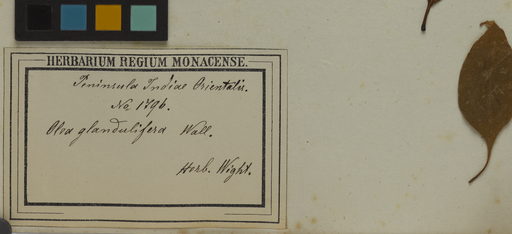 HERBARIUM REGIUM MONACENSE.
Peninsula Indiae Orientalis.
No 1796.
Olea glandulifera Wall.
Herb. Wight.